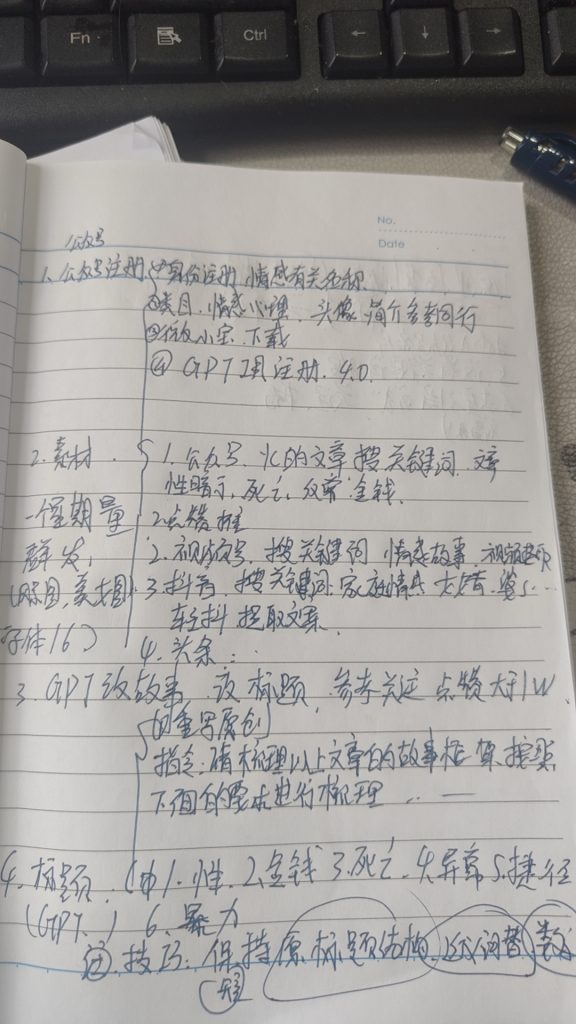 Fn
Ctrl
←
↓
→
No.
Date
公众号
1. 公众号注册 ① 身份注册 情感有关名称
②类目, 情感心理, 头像 简介参考同行
③ 小宝 下载
④ GPT 注册. 4.0.
2. 素材
1. 公众号 的文章 搜关键词 文章
性暗示, 死亡, 金钱.
一个星期量
2 点赞 推
群发,
2. 视频号, 搜关键词 情感故事 视频
(原图, 美图)
3. 抖音, 搜关键词 家庭情感
字体16)
轻抖 提取文案
4. 头条...
3. GPT 改故事 改标题, 参考关注 点赞大于1W
的重写原创
指令: 请梳理以上文章的故事框架 按照
下面的要求进行梳理 ...——
4. 标题. 1. 性. 2. 金钱 3. 死亡. 4. 异常 5. 捷径
(GPT.) 6. 暴力
技巧: 保持原标题结构, 词替